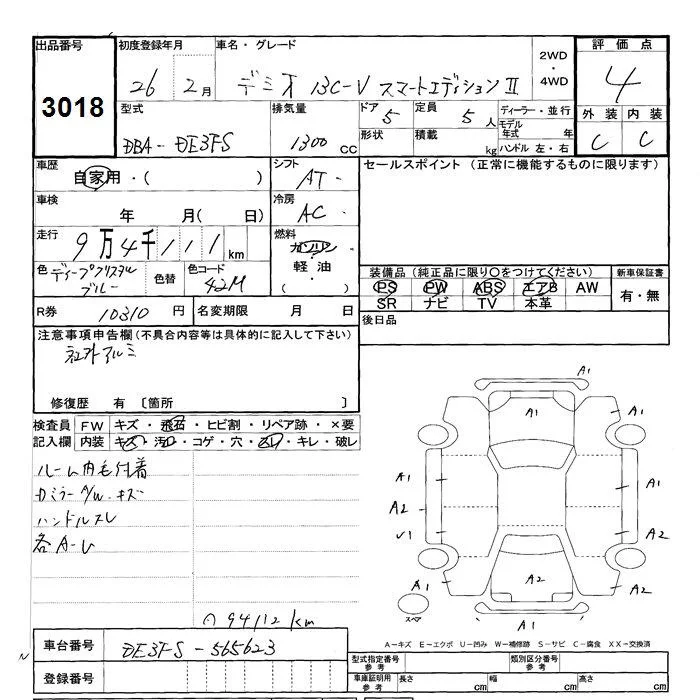 出品番号 初度登録年月 車名・グレード 2WD・4WD 評価点
3018 26 2月 デミオ 13C-V スマートエディションⅡ 4
型式 排気量 ドア 5 定員 5人 ディーラー・並行 外装 内装
DBA-DE3FS 1300cc 形状 積載 kg モデル年式 年 ハンドル 左・右 C C
車歴 自家用・( ) シフト AT・ セールスポイント (正常に機能するものに限ります)
車検 年 月( 日) 冷房 AC・
走行 9万4千111km 燃料 ガソリン・軽油・( )
色 ディープクリスタルブルー 色替 色コード 42M
装備品 (純正品に限り○をつけてください) 新車保証書
PS PW ABS エアB AW 有・無
SR ナビ TV 本革
R券 10310円 名変期限 月 日 後日品
注意事項申告欄 (不具合内容等は具体的に記入して下さい)
社外アルミ
修復歴 有 〔箇所 〕
検査員記入欄 FW キズ・飛石・ヒビ割・リペア跡・×要
内装 キズ・汚れ・コゲ・穴・スレ・キレ・破レ
ルーム内毛付着
カミラーA/W キズ
ハンドルスレ
各A-U
94112km
A1
A1
A1 A1
A2
V1 A2
A1 A2 A2
スペア A1
A-キズ E-エクボ U-凹み W-補修跡 S-サビ C-腐食 XX-交換済
車台番号 DE3FS-565623
登録番号
型式指定番号 参考 類別区分番号 参考
車庫証明用 参考 長さ cm 幅 cm 高さ cm